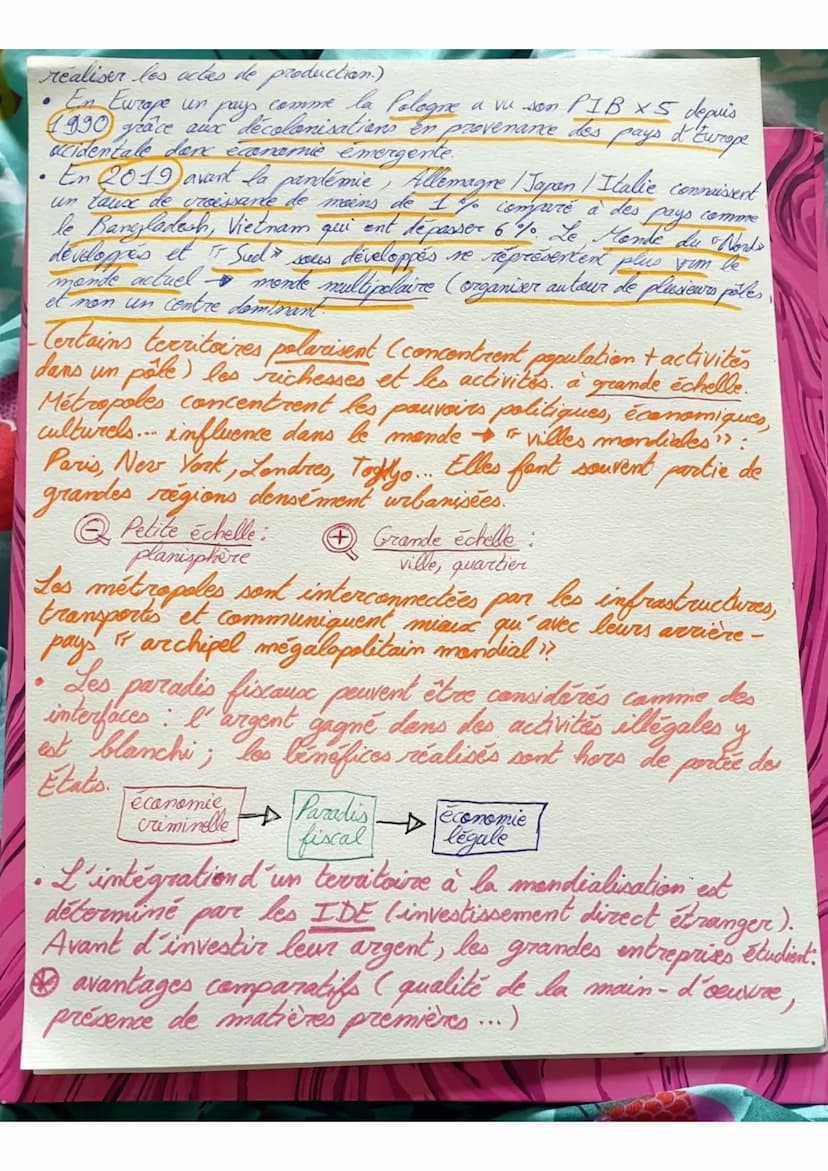 réaliser les actes de production.)
• En Europe un pays comme la Pologne a vu son PIB x 5 depuis
1990 grâce aux décolonisations en provenance des pays d'Europe
occidentale donc économie émergente.
• En 2019 avant la pandémie, Allemagne / Japon / Italie connaissent
un taux de croissance de moins de 1% comparé à des pays comme
le Bangladesh, Vietnam qui ont dépasser 6%. Le Monde du "Nord"
développés et "Sud" sous développés ne représentent plus le
monde actuel → monde multipolaire (organiser autour de plusieurs pôles,
et non un centre dominant.
- Certains territoires polarisent (concentrent population + activités
dans un pôle) les richesses et les activités. à grande échelle.
Métropoles concentrent les pouvoirs politiques, économiques,
culturels... influence dans le monde → "villes mondiales" :
Paris, New York, Londres, Tokyo... Elles font souvent partie de
grandes régions densément urbanisées.
Petite échelle : Grande échelle :
planisphère ville, quartier
Les métropoles sont interconnectées par les infrastructures,
transports et communiquent mieux qu'avec leurs arrière-
pays "archipel mégalopolitain mondial"
• Les paradis fiscaux peuvent être considérés comme des
interfaces : l'argent gagné dans des activités illégales y
est blanchi ; les bénéfices réalisés sont hors de portée des
États.
économie criminelle → Paradis fiscal → économie légale
• L'intégration d'un territoire à la mondialisation est
déterminé par les IDE (investissement direct étranger).
Avant d'investir leur argent, les grandes entreprises étudient :
* avantages comparatifs (qualité de la main-d'œuvre,
présence de matières premières...)